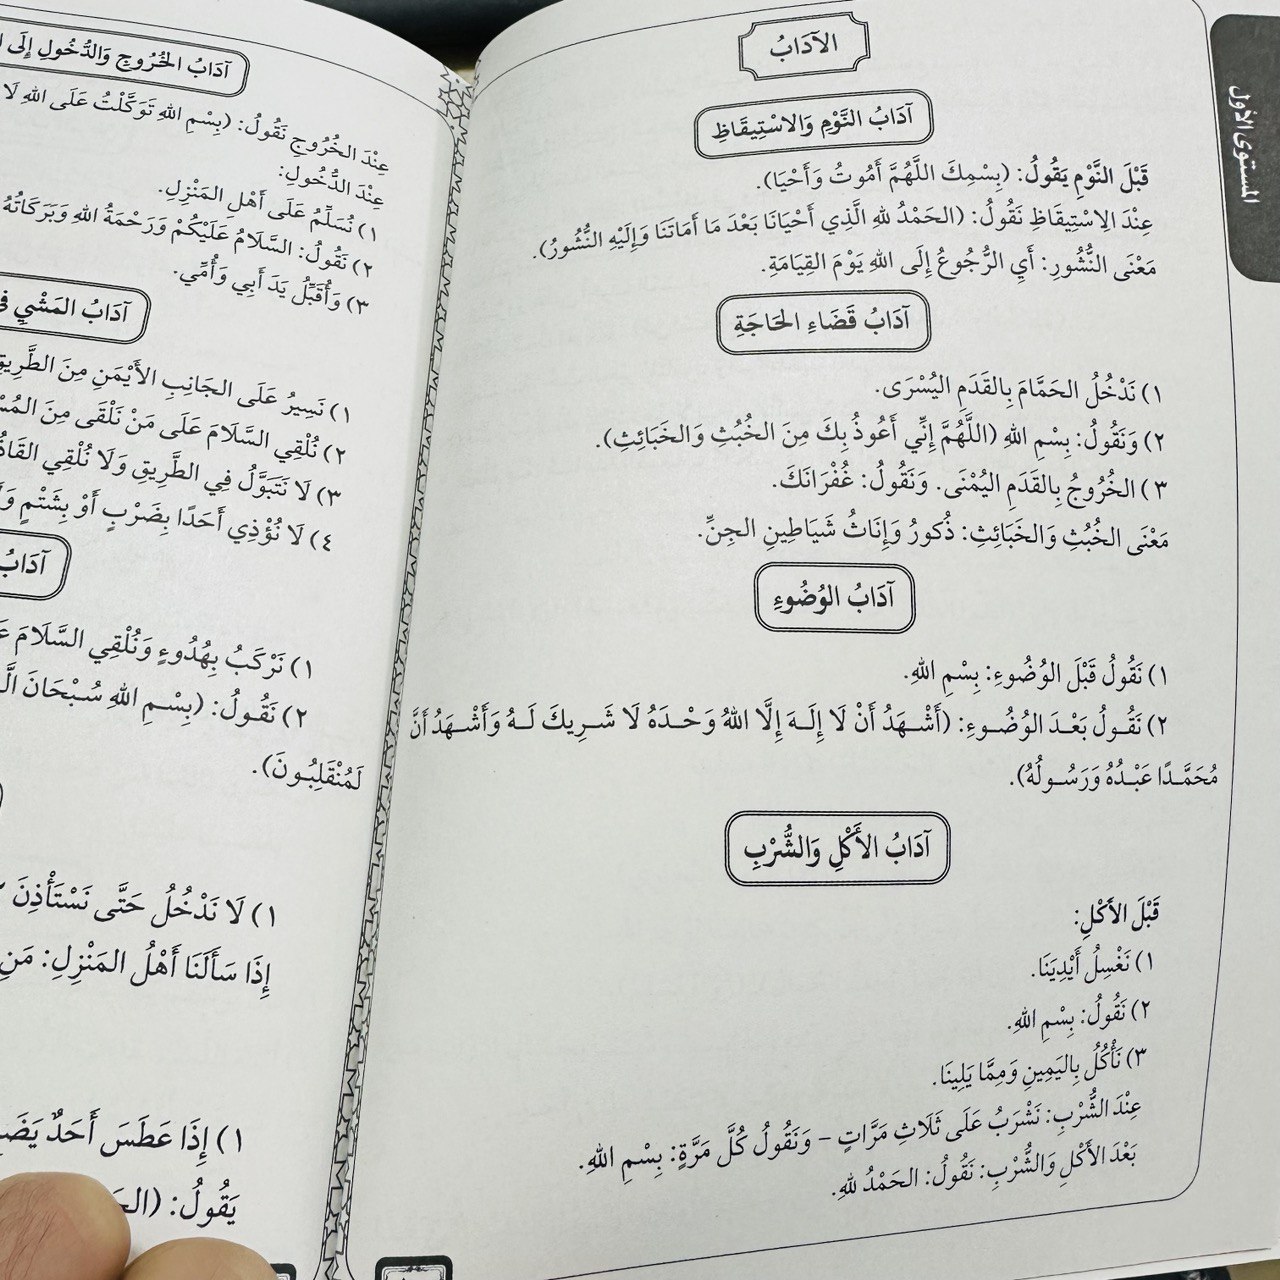 المستوى الأول
الآدَابُ
آدَابُ النَّوْمِ وَالاسْتِيقَاظِ
قَبْلَ النَّوْمِ يَقُولُ: (بِسْمِكَ اللَّهُمَّ أَمُوتُ وَأَحْيَا).
عِنْدَ الِاسْتِيقَاظِ نَقُولُ: (الحَمْدُ للهِ الَّذِي أَحْيَانَا بَعْدَ مَا أَمَاتَنَا وَإِلَيْهِ النُّشُورُ).
مَعْنَى النُّشُورِ: أَيِ الرُّجُوعُ إِلَى اللهِ يَوْمَ القِيَامَةِ.
آدَابُ قَضَاءِ الحَاجَةِ
١) نَدْخُلُ الحَمَّامَ بِالقَدَمِ اليُسْرَى.
٢) وَنَقُولُ: بِسْمِ اللهِ (اللَّهُمَّ إِنِّي أَعُوذُ بِكَ مِنَ الخُبُثِ وَالخَبَائِثِ).
٣) الخُرُوجُ بِالقَدَمِ اليُمْنَى. وَنَقُولُ: غُفْرَانَكَ.
مَعْنَى الخُبُثِ وَالخَبَائِثِ: ذُكورُ وَإِنَاثُ شَيَاطِينِ الجِنِّ.
آدَابُ الوُضُوءِ
١) نَقُولُ قَبْلَ الوُضُوءِ: بِسْمِ اللهِ.
٢) نَقُـولُ بَعْـدَ الوُضُـوءِ: (أَشْـهَدُ أَنْ لَا إِلَـهَ إِلَّا اللهُ وَحْـدَهُ لَا شَـرِيكَ لَـهُ وَأَشْـهَدُ أَنَّ
مُحَمَّـدًا عَبْـدُهُ وَرَسُـولُهُ).
آدَابُ الأَكْلِ وَالشُّرْبِ
قَبْلَ الأَكْلِ:
١) نَغْسِلُ أَيْدِيَنَا.
٢) نَقُولُ: بِسْمِ اللهِ.
٣) نَأْكُلُ بِاليَمِينِ وَمِمَّا يَلِينَا.
عِنْدَ الشُّرْبِ: نَشْرَبُ عَلَى ثَلَاثِ مَرَّاتٍ – وَنَقُولُ كُلَّ مَرَّةٍ: بِسْمِ اللهِ.
بَعْدَ الأَكْلِ وَالشُّرْبِ: نَقُولُ: الحَمْدُ للهِ.
آدَابُ الخُرُوجِ وَالدُّخُولِ إِلَى
عِنْدَ الخُرُوجِ نَقُولُ: (بِسْمِ اللهِ تَوَكَّلْتُ عَلَى اللهِ لَا
عِنْدَ الدُّخُولِ:
١) نُسَلِّمُ عَلَى أَهْلِ المَنْزِلِ.
٢) نَقُولُ: السَّلَامُ عَلَيْكُمْ وَرَحْمَةُ اللهِ وَبَرَكَاتُهُ
٣) وَأُقَبِّلُ يَدَ أَبِي وَأُمِّي.
آدَابُ المَشْيِ
١) نَسِيرُ عَلَى الجَانِبِ الأَيْمَنِ مِنَ
٢) نُلْقِي السَّلَامَ عَلَى مَنْ نَلْقَى مِنَ
٣) لَا نَتَبَوَّلُ فِي الطَّرِيقِ وَلَا نُلْقِي
٤) لَا نُؤْذِي أَحَدًا بِضَرْبٍ أَوْ بِشَتْمٍ
آدَابُ
١) نَرْكَبُ بِهُدُوءٍ وَنُلْقِي السَّلَامَ
٢) نَقُـولُ: (بِسْـمِ اللهِ سُـبْحَانَ
لَمُنْقَلِبُـونَ).
١) لَا نَدْخُلُ حَتَّى نَسْتَأْذِنَ
إِذَا سَأَلَنَا أَهْلُ المَنْزِلِ: مَنِ
١) إِذَا عَطَسَ أَحَدٌ
يَقُولُ: